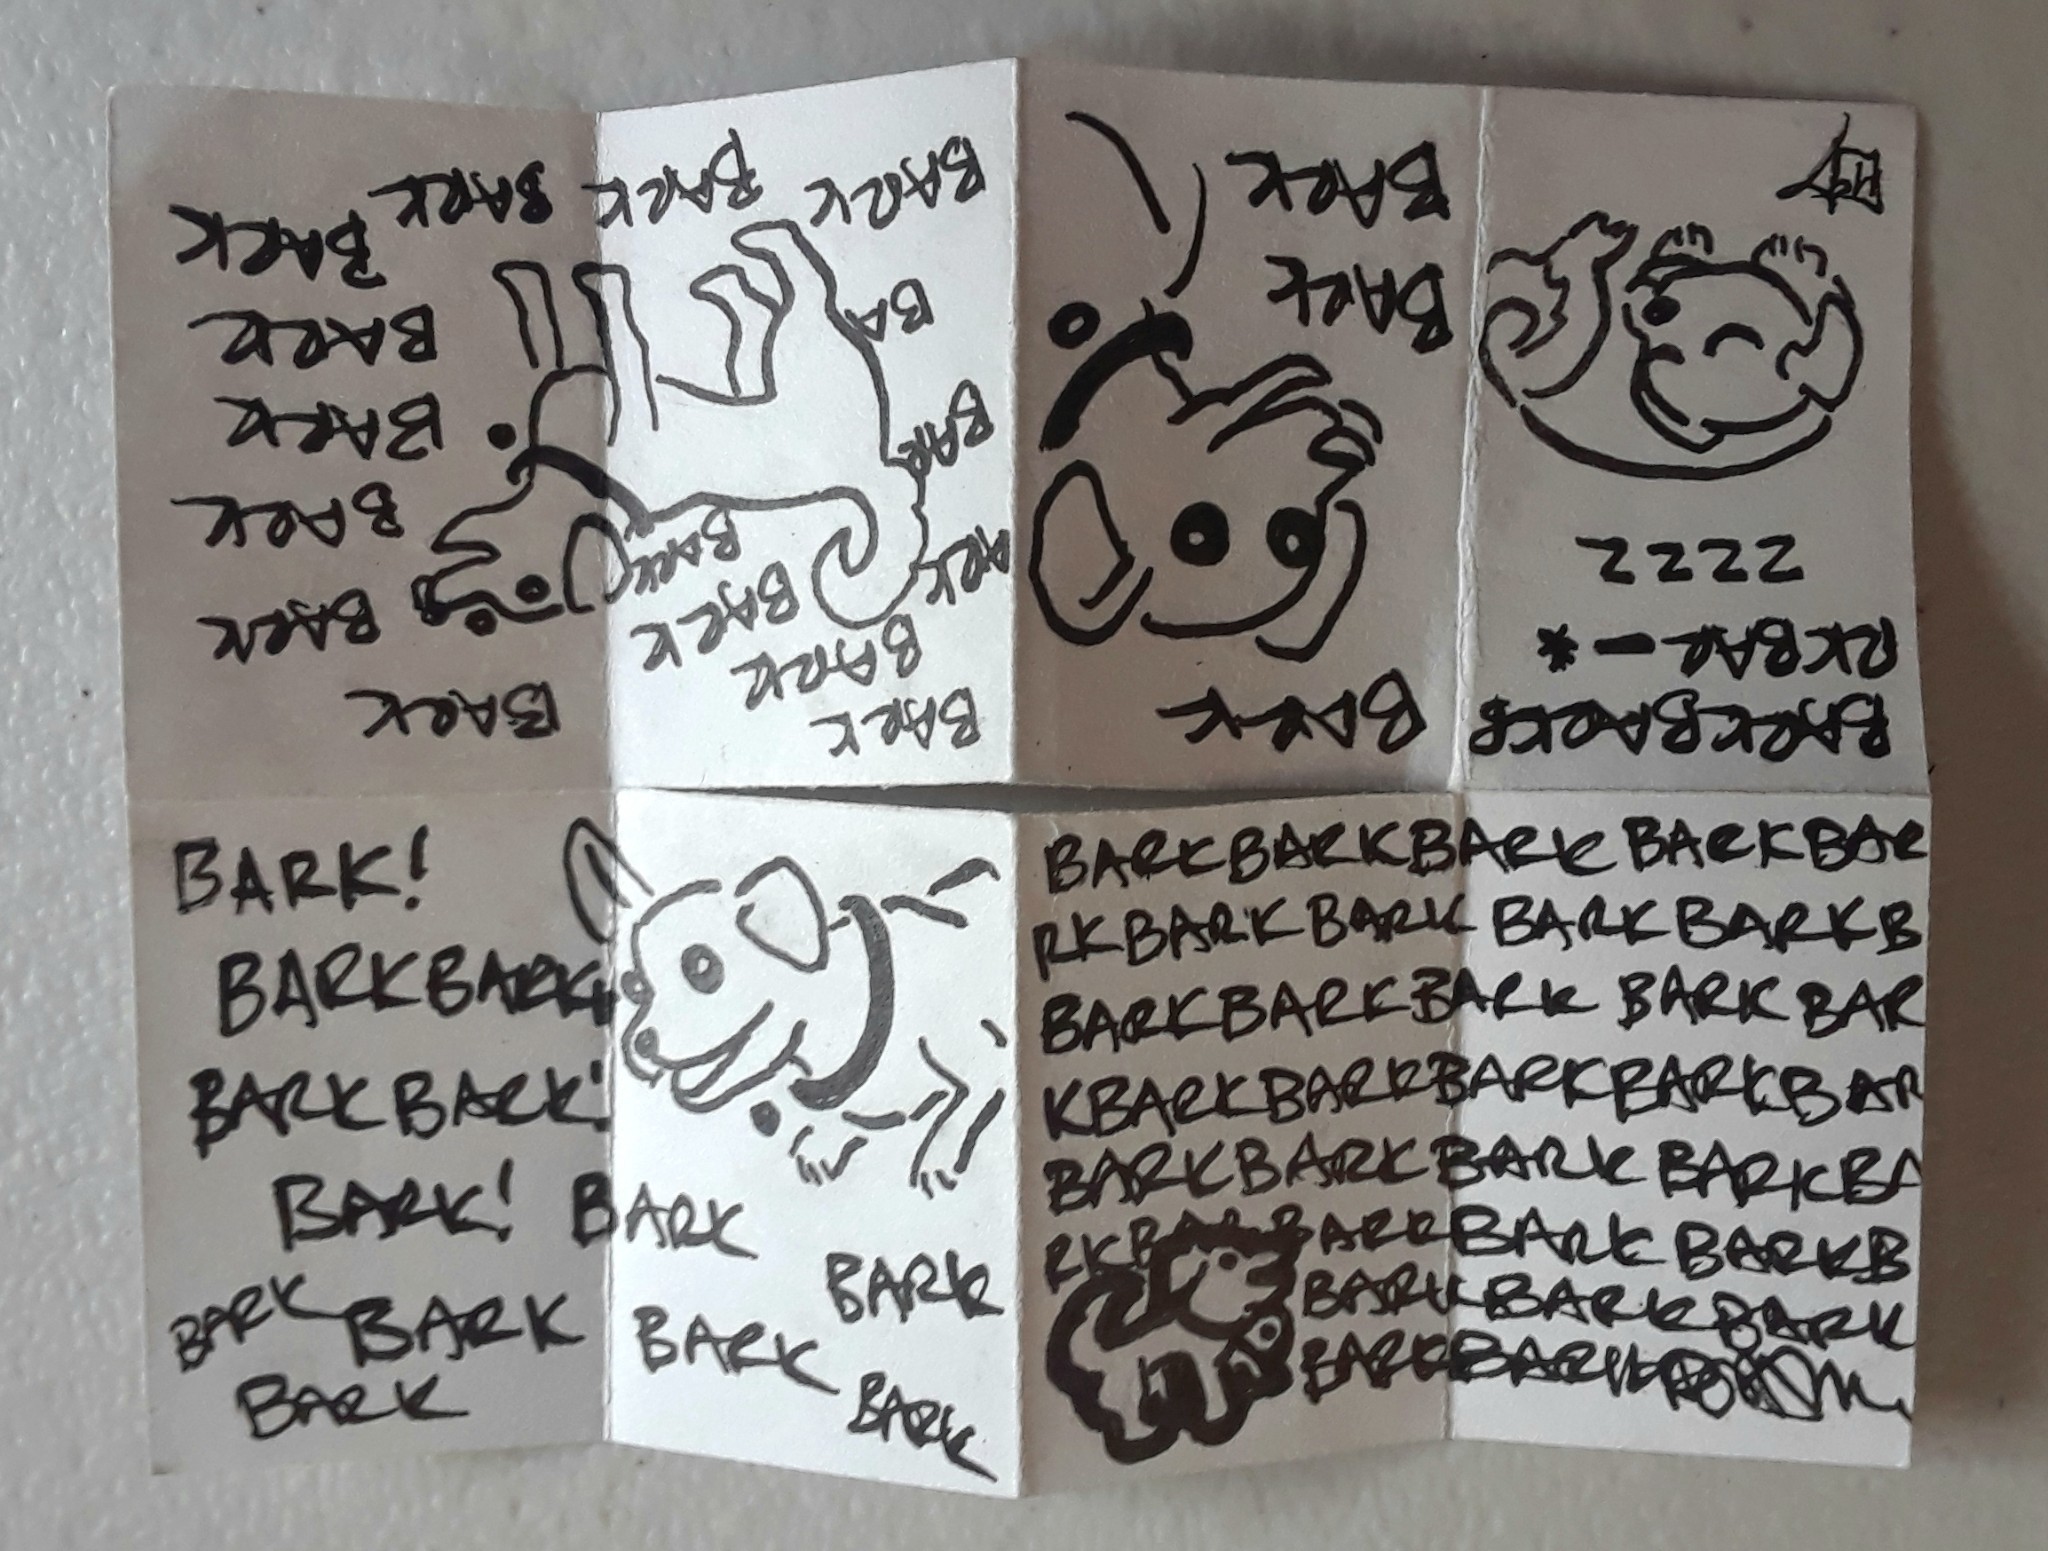 BARK
BARK
BARK
BARK
BARK
BARK
BARK
ARK
BAR
BA
BARK
BARK
BARK
BARK
BARK
BARK
BARK
BARK
BARK
BARK!
BARKBARK
BARK BARK!
BARK! BARK
BARK BARK
BARK
BARK
BARK
BARK
BARKBARKBARK BARKBAR
RKBARKBARK BARKBARKB
BARKBARKBARK BARK BAR
KBARKBARKBARKBARKBAR
BARKBARKBARK BARKBA
RKBARBARKBARK BARKB
BARKBARKBARK
BARKBARK
BARKBARKB
RKBAR-*
ZZZZ